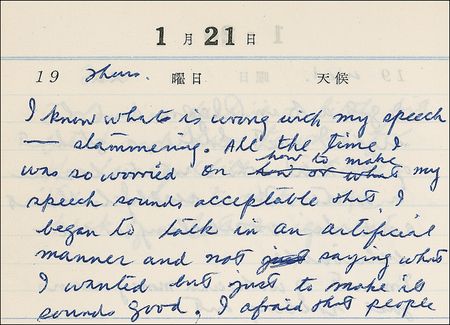 1月21日
19 Thurs. 曜日 天候
I know what is wrong with my speech
— stammering. All the time I
was so worried on how to make my
speech sounds acceptable that I
began to talk in an artificial
manner and not just saying what
I wanted but just to make it
sounds good. I afraid that people